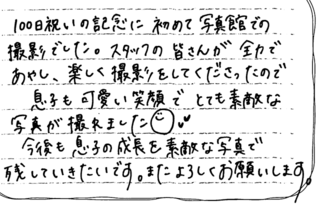 100日祝いの記念に 初めて写真館での
撮影でした。スタッフの皆さんが 全力で
あやし、楽しく撮影をしてくださったので
息子も可愛い笑顔で とても素敵な
写真が撮れました
今後も息子の成長を素敵な写真で
残していきたいです。またよろしくお願いします。